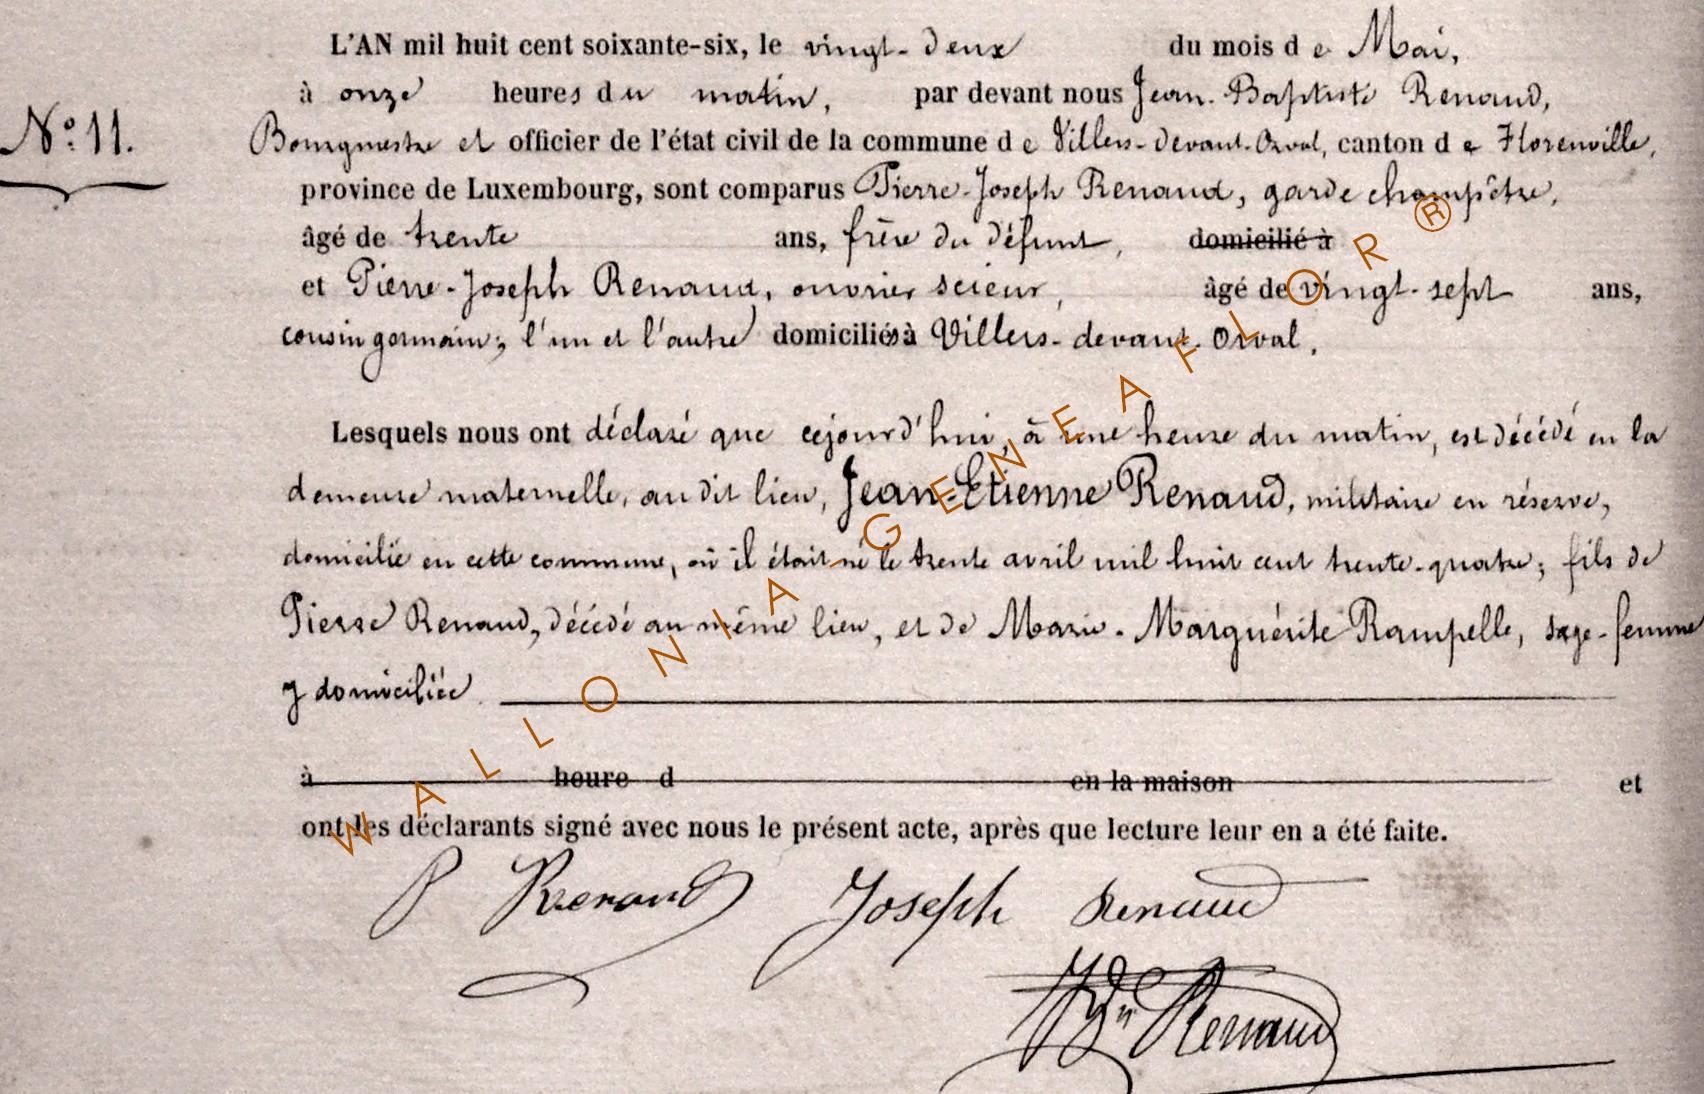 L'AN mil huit cent soixante-six, le vingt-deux du mois de Mai,
à onze heures du matin, par devant nous Jean-Baptiste Renaud,
N° 11.
Bourgmestre et officier de l'état civil de la commune de Villers-devant-Orval, canton de Florenville,
province de Luxembourg, sont comparus Pierre-Joseph Renaud, garde champêtre,
âgé de trente ans, frère du défunt, domicilié à
et Pierre-Joseph Renaud, ouvrier scieur, âgé de vingt-sept ans,
cousin germain; l'un et l'autre domiciliés à Villers-devant-Orval.
Lesquels nous ont déclaré que cejourd'hui, à une heure du matin, est décédé en la
demeure maternelle, au dit lieu, Jean-Etienne Renaud, militaire en réserve,
domicilié en cette commune, où il était né le trente avril mil huit cent trente-quatre; fils de
Pierre Renaud, décédé au même lieu, et de Marie-Marguérite Rampelle, sage-femme
y domiciliée
à heure d en la maison et
ont les déclarants signé avec nous le présent acte, après que lecture leur en a été faite.
P Renaud Joseph Renaud
JBte Renaud
WALLONIA-GENEAFLOR®